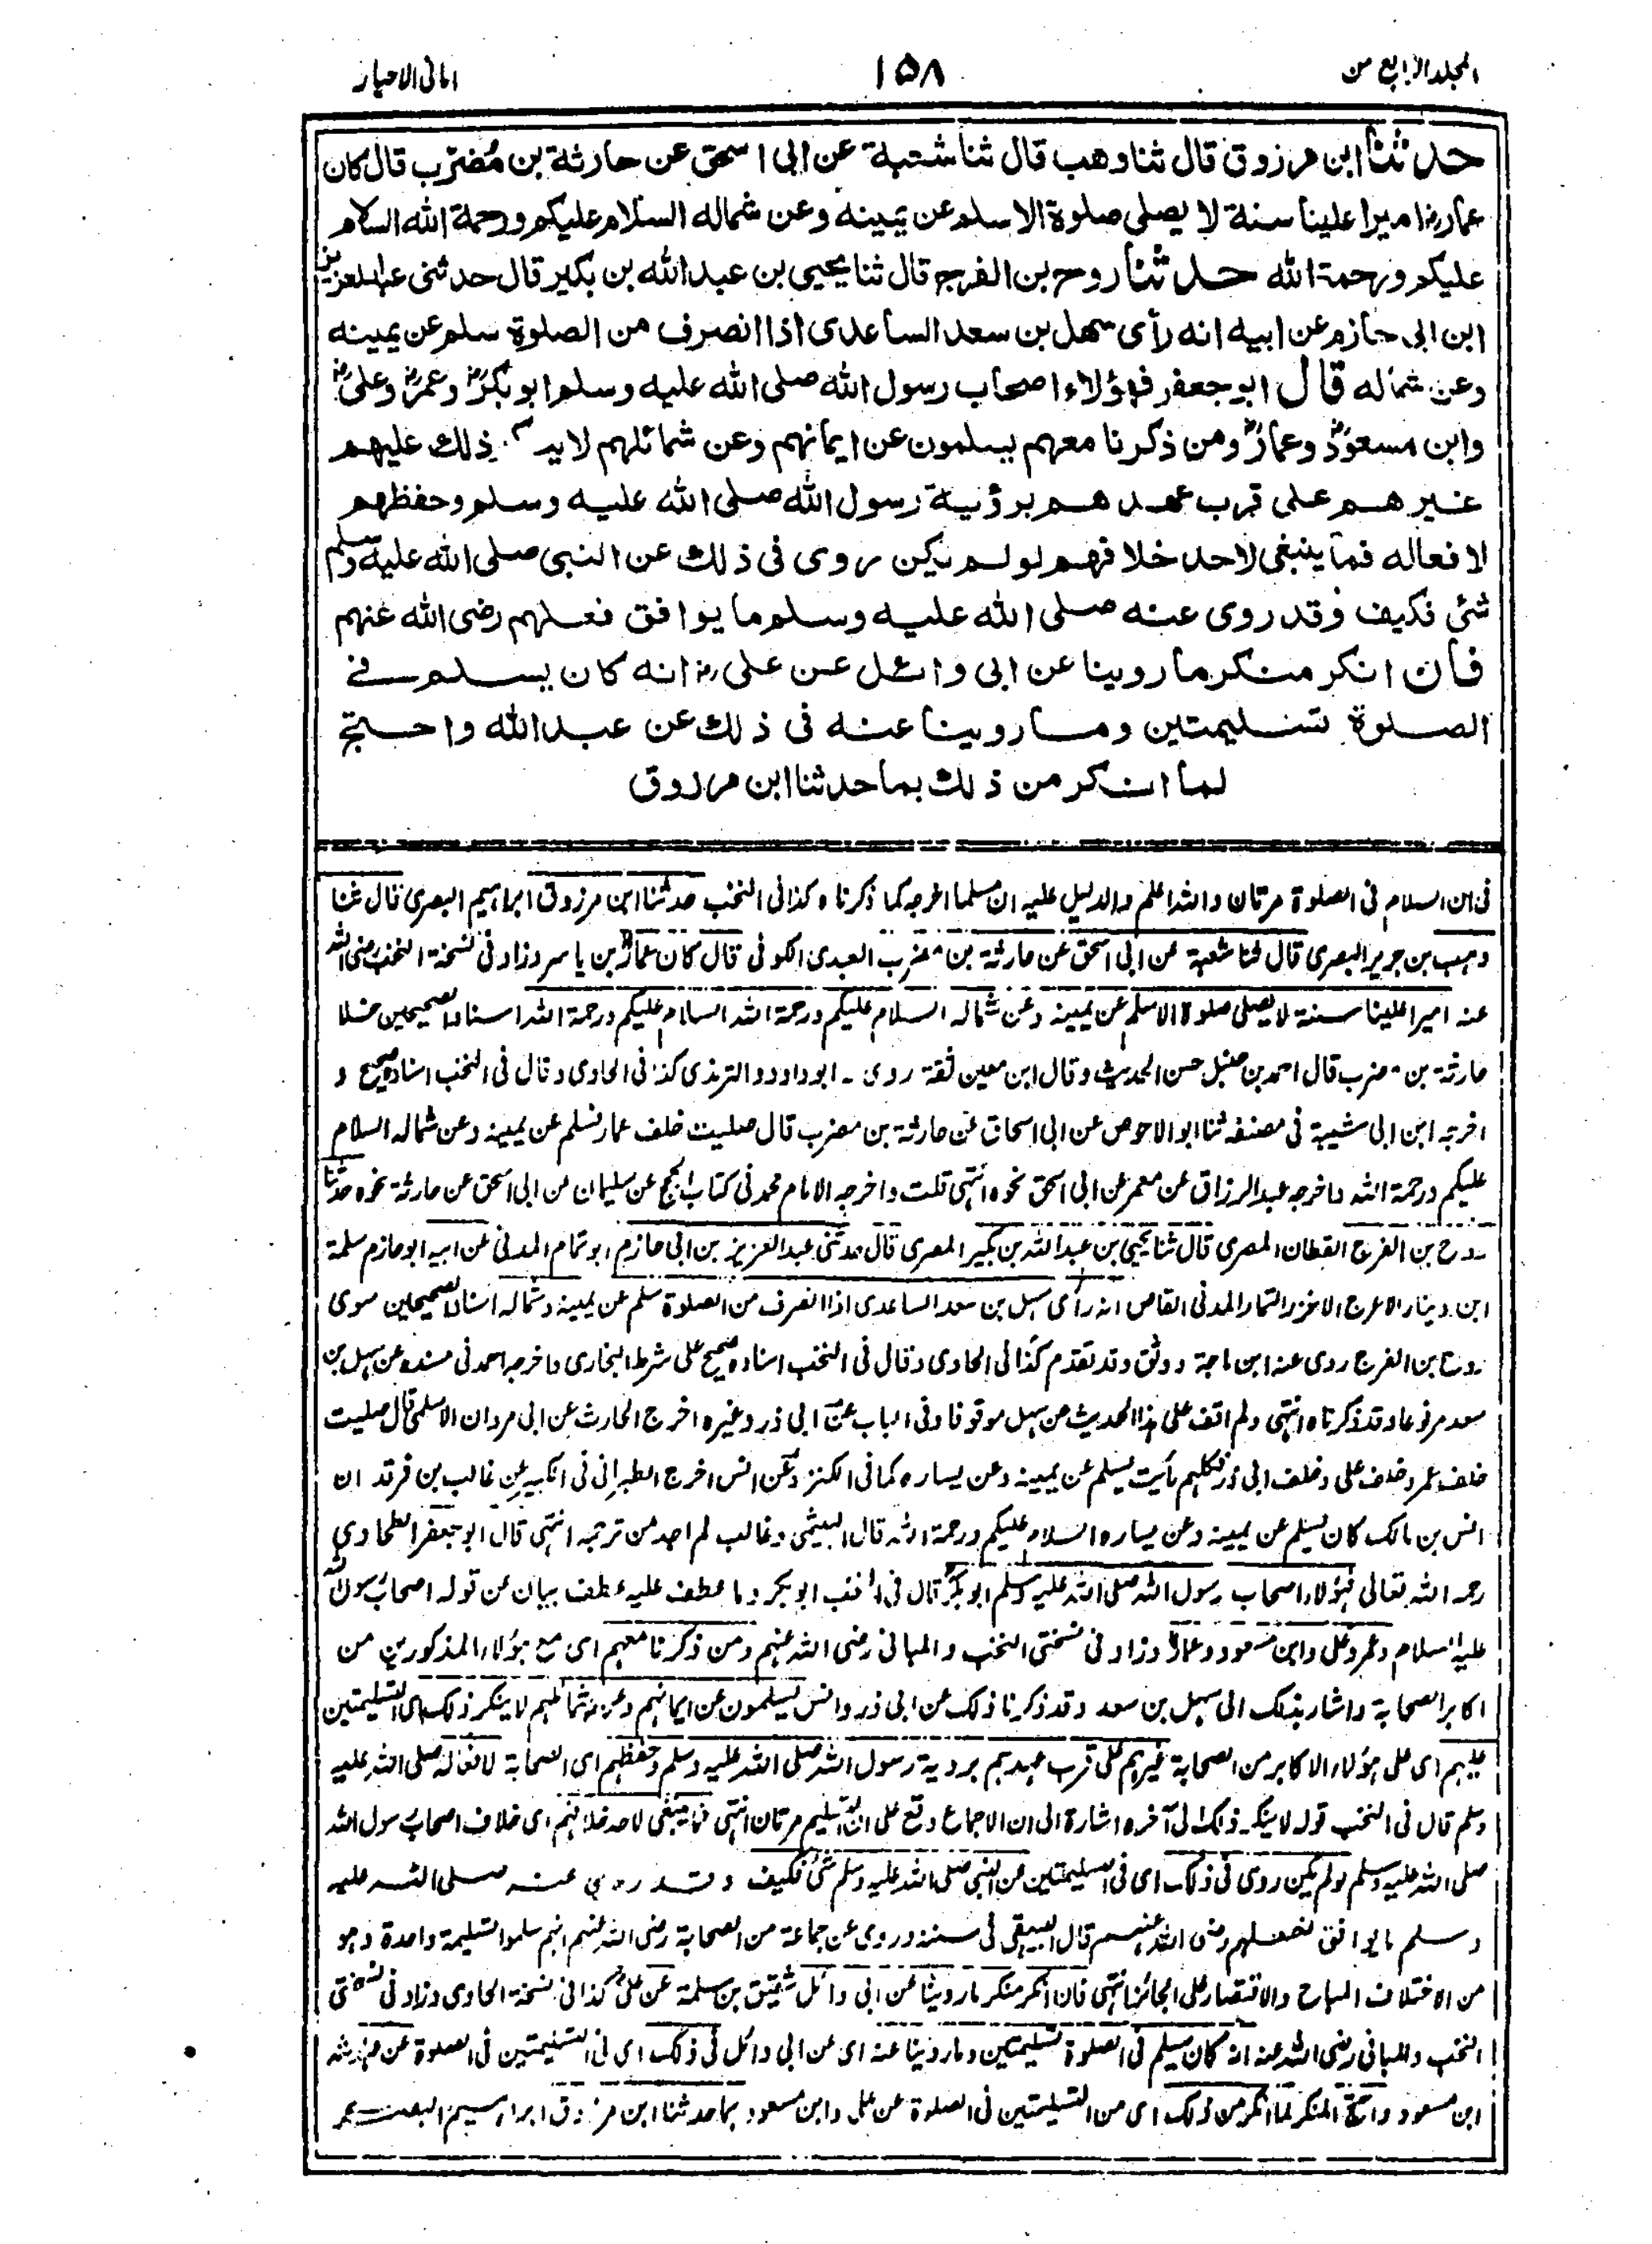 المجلد الرابع من
١٥٨
امانی الاحبار
حدثنا ابن مرزوق قال ثنا وهب قال ثنا شعبة عن ابی اسحق عن حارثة بن مضرب قال کان
عمار رضـ امیرا علینا سنة لا یصلی صلوة الا سلم عن یمینه وعن شماله السلام علیکم ورحمة الله السلام
علیکم ورحمة الله حدثنا روح بن الفرج قال ثنا یحیی بن عبد الله بن بکیر قال حدثنی عبد العزیز
ابن ابی حازم عن ابیه انه رأی سهل بن سعد الساعدی اذا انصرف من الصلوة سلم عن یمینه
وعن شماله قال ابو جعفر فهؤلاء اصحاب رسول الله صلی الله علیه وسلم ابو بکرؓ وعمرؓ وعلیؓ
وابن مسعودؓ وعمارؓ ومن ذکرنا معهم یسلمون عن ایمانهم وعن شمائلهم لا ینکر ذلك علیهم
غیرهم علی قرب عهدهم برؤیة رسول الله صلی الله علیه وسلم وحفظهم
لافعاله فما ینبغی لاحد خلافهم لو لم یکن روی فی ذلك عن النبی صلی الله علیه وسلم
شئ فکیف وقد روی عنه صلی الله علیه وسلم ما یوافق فعلهم رضی الله عنهم
فان انکر منکر ما روینا عن ابی وائل عن علی رضـ انه کان یسلم فی
الصلوة تسلیمتین وما روینا عنه فی ذلك عن عبد الله واحتج
لما انکر من ذلك بما حدثنا ابن مرزوق
فی ان السلام فی الصلوة مرتان والله اعلم والدلیل علیه ان مسلما اخرجه کما ذکرنا وکذا فی النخب حدثنا ابن مرزوق ابراهیم البصری قال ثنا
وهب بن جریر البصری قال ثنا شعبة عن ابی اسحق عن حارثة بن مضرب العبدی الکوفی قال کان عمارؓ بن یاسر وزاد فی نسخة النخب رضی الله
عنه امیرا علینا سنة لا یصلی صلوة الا سلم عن یمینه وعن شماله السلام علیکم ورحمة الله السلام علیکم ورحمة الله اسناده الصحیحین خلا
حارثة بن مضرب قال احمد بن حنبل حسن الحدیث وقال ابن معین ثقة روی ـ ابو داود والترمذی کذا فی الحاوی وقال فی النخب اسناده صحیح و
اخرجه ابن ابی شیبة فی مصنفه ثنا ابو الاحوص عن ابی اسحاق عن حارثة بن مضرب قال صلیت خلف عمار فسلم عن یمینه وعن شماله السلام
علیکم ورحمة الله واخرجه عبد الرزاق عن معمر عن ابی اسحق نحوه انتهی قلت واخرجه الامام محمد فی کتاب الحج عن سلیمان عن ابی اسحق عن حارثة نحوه حدثنا
روح بن الفرج القطان المصری قال ثنا یحیی بن عبد الله بن بکیر المصری قال حدثنی عبد العزیز بن ابی حازم ابو تمام المدنی عن ابیه ابو حازم سلمة
ابن دینار الاعرج الافزر التمار المدنی القاص انه رأی سهل بن سعد الساعدی اذا انصرف من الصلوة سلم عن یمینه وشماله اسناده الصحیحین سوی
روح بن الفرج روی عنه ابن ماجة ووثق وقد تقدم کذا فی الحاوی وقال فی النخب اسناده صحیح علی شرط البخاری واخرجه احمد فی مسنده عن سهل بن
سعد مرفوعا وقد ذکرناه انتهی ولم اقف علی هذا الحدیث من سهل موقوفا وفی الباب عن ابی ذر وغیره اخرج الحارث عن ابی مروان الاسلمی قال صلیت
خلف عمر وخلف علی وخلف ابی ذر فکلهم رأیت یسلم عن یمینه وعن یساره کما فی الکنز وعن انس اخرج الطبرانی فی الکبیر عن غالب بن فرقد ان
انس بن مالک کان یسلم عن یمینه وعن یساره السلام علیکم ورحمة الله قال الهیثمی وغالب لم اجد من ترجمه انتهی قال ابو جعفر الطحاوی
رحمه الله تعالی فهؤلاء اصحاب رسول الله صلی الله علیه وسلم ابو بکرؓ قال فی النخب ابو بکر وما عطف علیه عطف بیان عن قوله اصحاب رسول الله
علیه السلام وعمر وعلی وابن مسعود وعمار وزاد فی نسختی النخب والمبانی رضی الله عنهم ومن ذکرنا معهم ای مع هؤلاء المذکورین من
اکابر الصحابة واشار بذلک الی سهل بن سعد وقد ذکرنا ذلک عن ابی ذر وانس یسلمون عن ایمانهم وعن شمائلهم لا ینکر ذلک ای التسلیمتین
علیهم ای علی هؤلاء الاکابر من الصحابة غیرهم علی قرب عهدهم برویة رسول الله صلی الله علیه وسلم وحفظهم ای الصحابة لافعاله صلی الله علیه
وسلم قال فی النخب قوله لا ینکر ذلک الی آخره اشارة الی ان الاجماع وقع علی ان التسلیم مرتان انتهی فما ینبغی لاحد خلافهم ای خلاف اصحاب رسول الله
صلی الله علیه وسلم لو لم یکن روی فی ذلک ای فی التسلیمتین عن النبی صلی الله علیه وسلم شئ فکیف وقد روی عنه صلی الله علیه
وسلم ما یوافق فعلهم رضی الله عنهم قال البیهقی فی سننه وروی عن جماعة من الصحابة رضی الله عنهم انهم سلموا تسلیمة واحدة وهو
من الاختلاف المباح والاقتصار علی الجائز انتهی فان انکر منکر ما روینا عن ابی وائل شقیق بن سلمة عن علیؓ کذا فی نسخة الحاوی وزاد فی نسختی
النخب والمبانی رضی الله عنه انه کان یسلم فی الصلوة تسلیمتین وما روینا عنه ای عن ابی وائل فی ذلک ای فی التسلیمتین فی الصلوة عن عبد الله
ابن مسعود واحتج المنکر لما انکر من ذلک ای من التسلیمتین فی الصلوة عن علی وابن مسعود بما حدثنا ابن مرزوق ابراهیم البصری